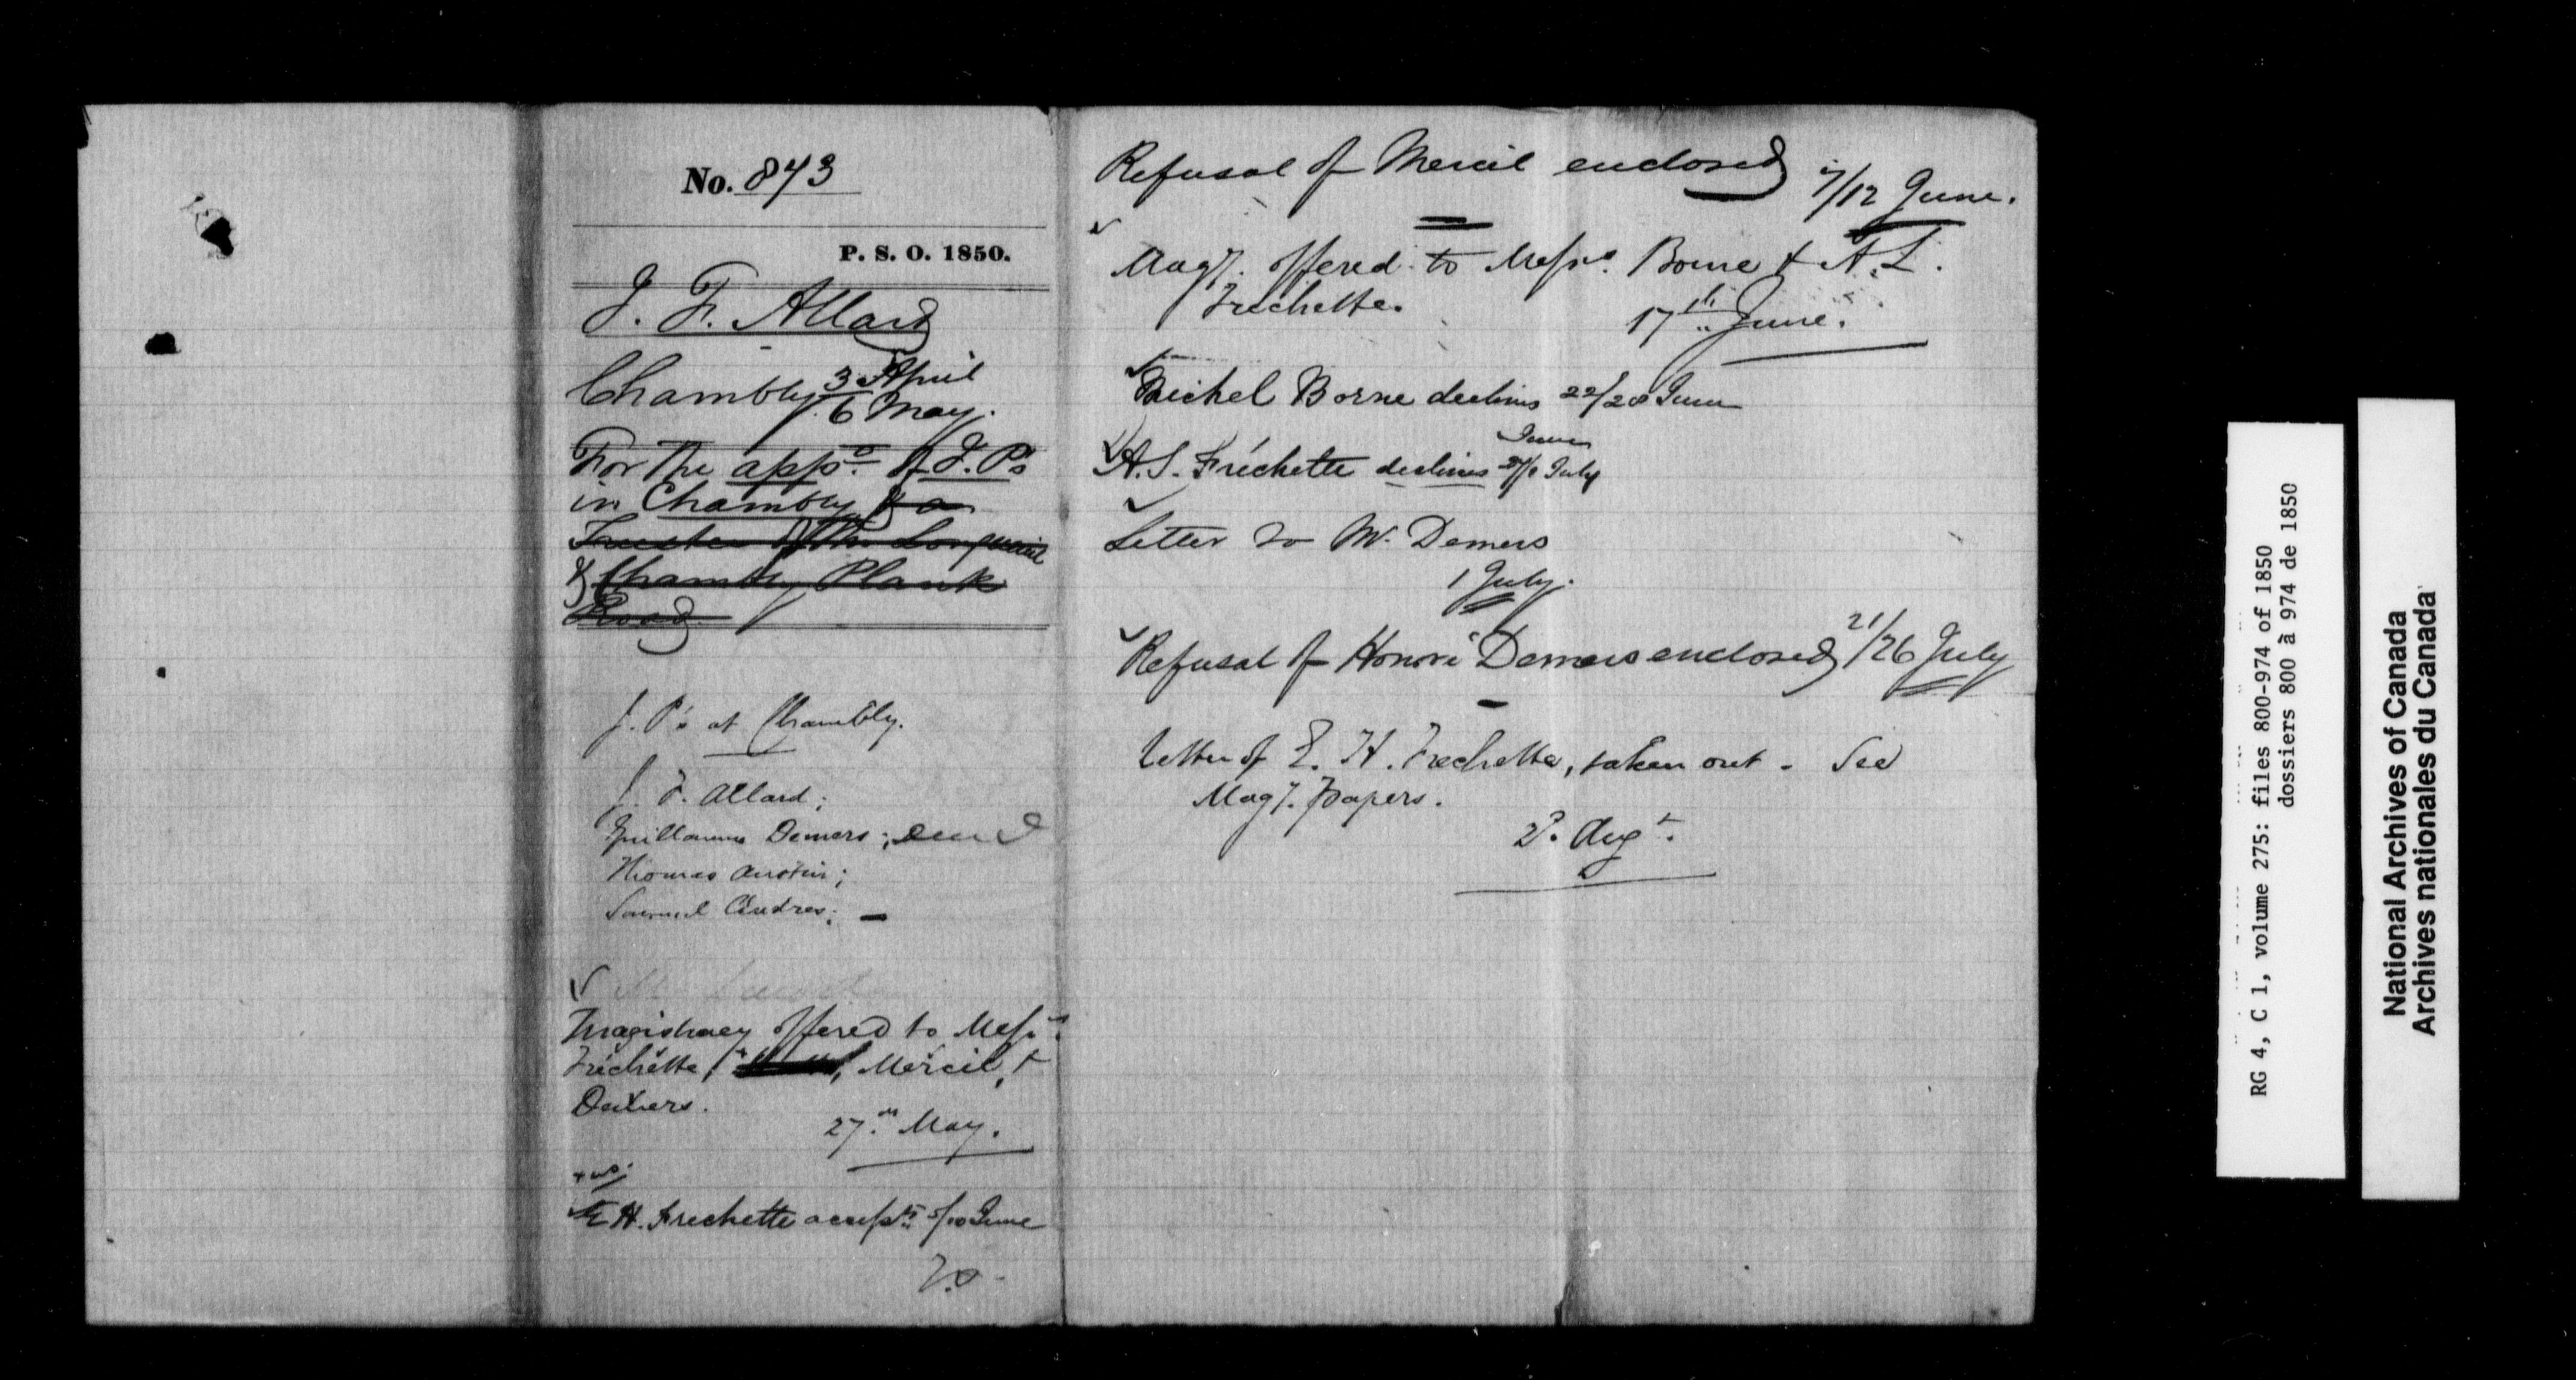 No. 843
P. S. O. 1850.
J. F. Allard
Chambly 3 April
6 May.
For the app.t of J. P's
in Chambly & a
Trustee of the Longueuil
& Chambly Plank
Road
J. P's at Chambly.
J. F. Allard;
Guillaume Demers; dead
Thomas Austin;
Samuel Andres; —
Magistracy offered to Messrs.
Fréchette, Mercil, &
Demers.
27.th May.
E H. Frechette accepts 5/10 June
Refusal of Mercil enclosed 7/12 June.
Magy. offered to Messrs. Borne & A. L.
Frechette.
17th June.
Michel Borne declines 22/28 June
A. S. Fréchette declines June
/1 July
Letter to M. Demers
1 July.
Refusal of Honoré Demers enclosed 21/26 July
Letter of E. H. Frechette, taken out - See
Magy. Papers.
2d. Augt.
RG 4, C 1, volume 275: files 800-974 of 1850
dossiers 800 à 974 de 1850
National Archives of Canada
Archives nationales du Canada